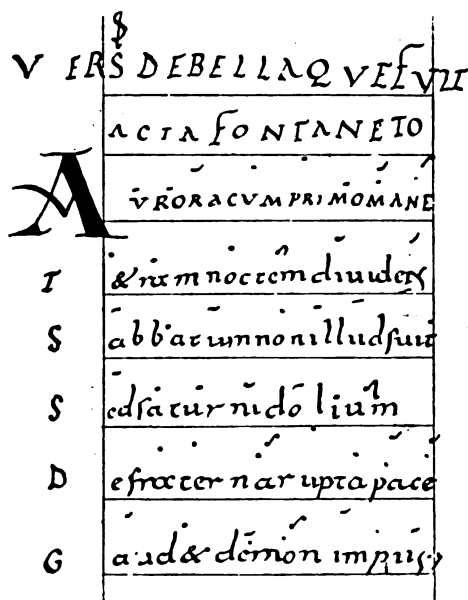 VERS DE BELLA QVE FVIT
ACTA FONTANETO
AVRORA CVM PRIMO MANE
T &ram noctem diuidens
S abbatum non illud fuit
S ed saturni dolium
D e fraterna rupta pace
G aud& demon impius